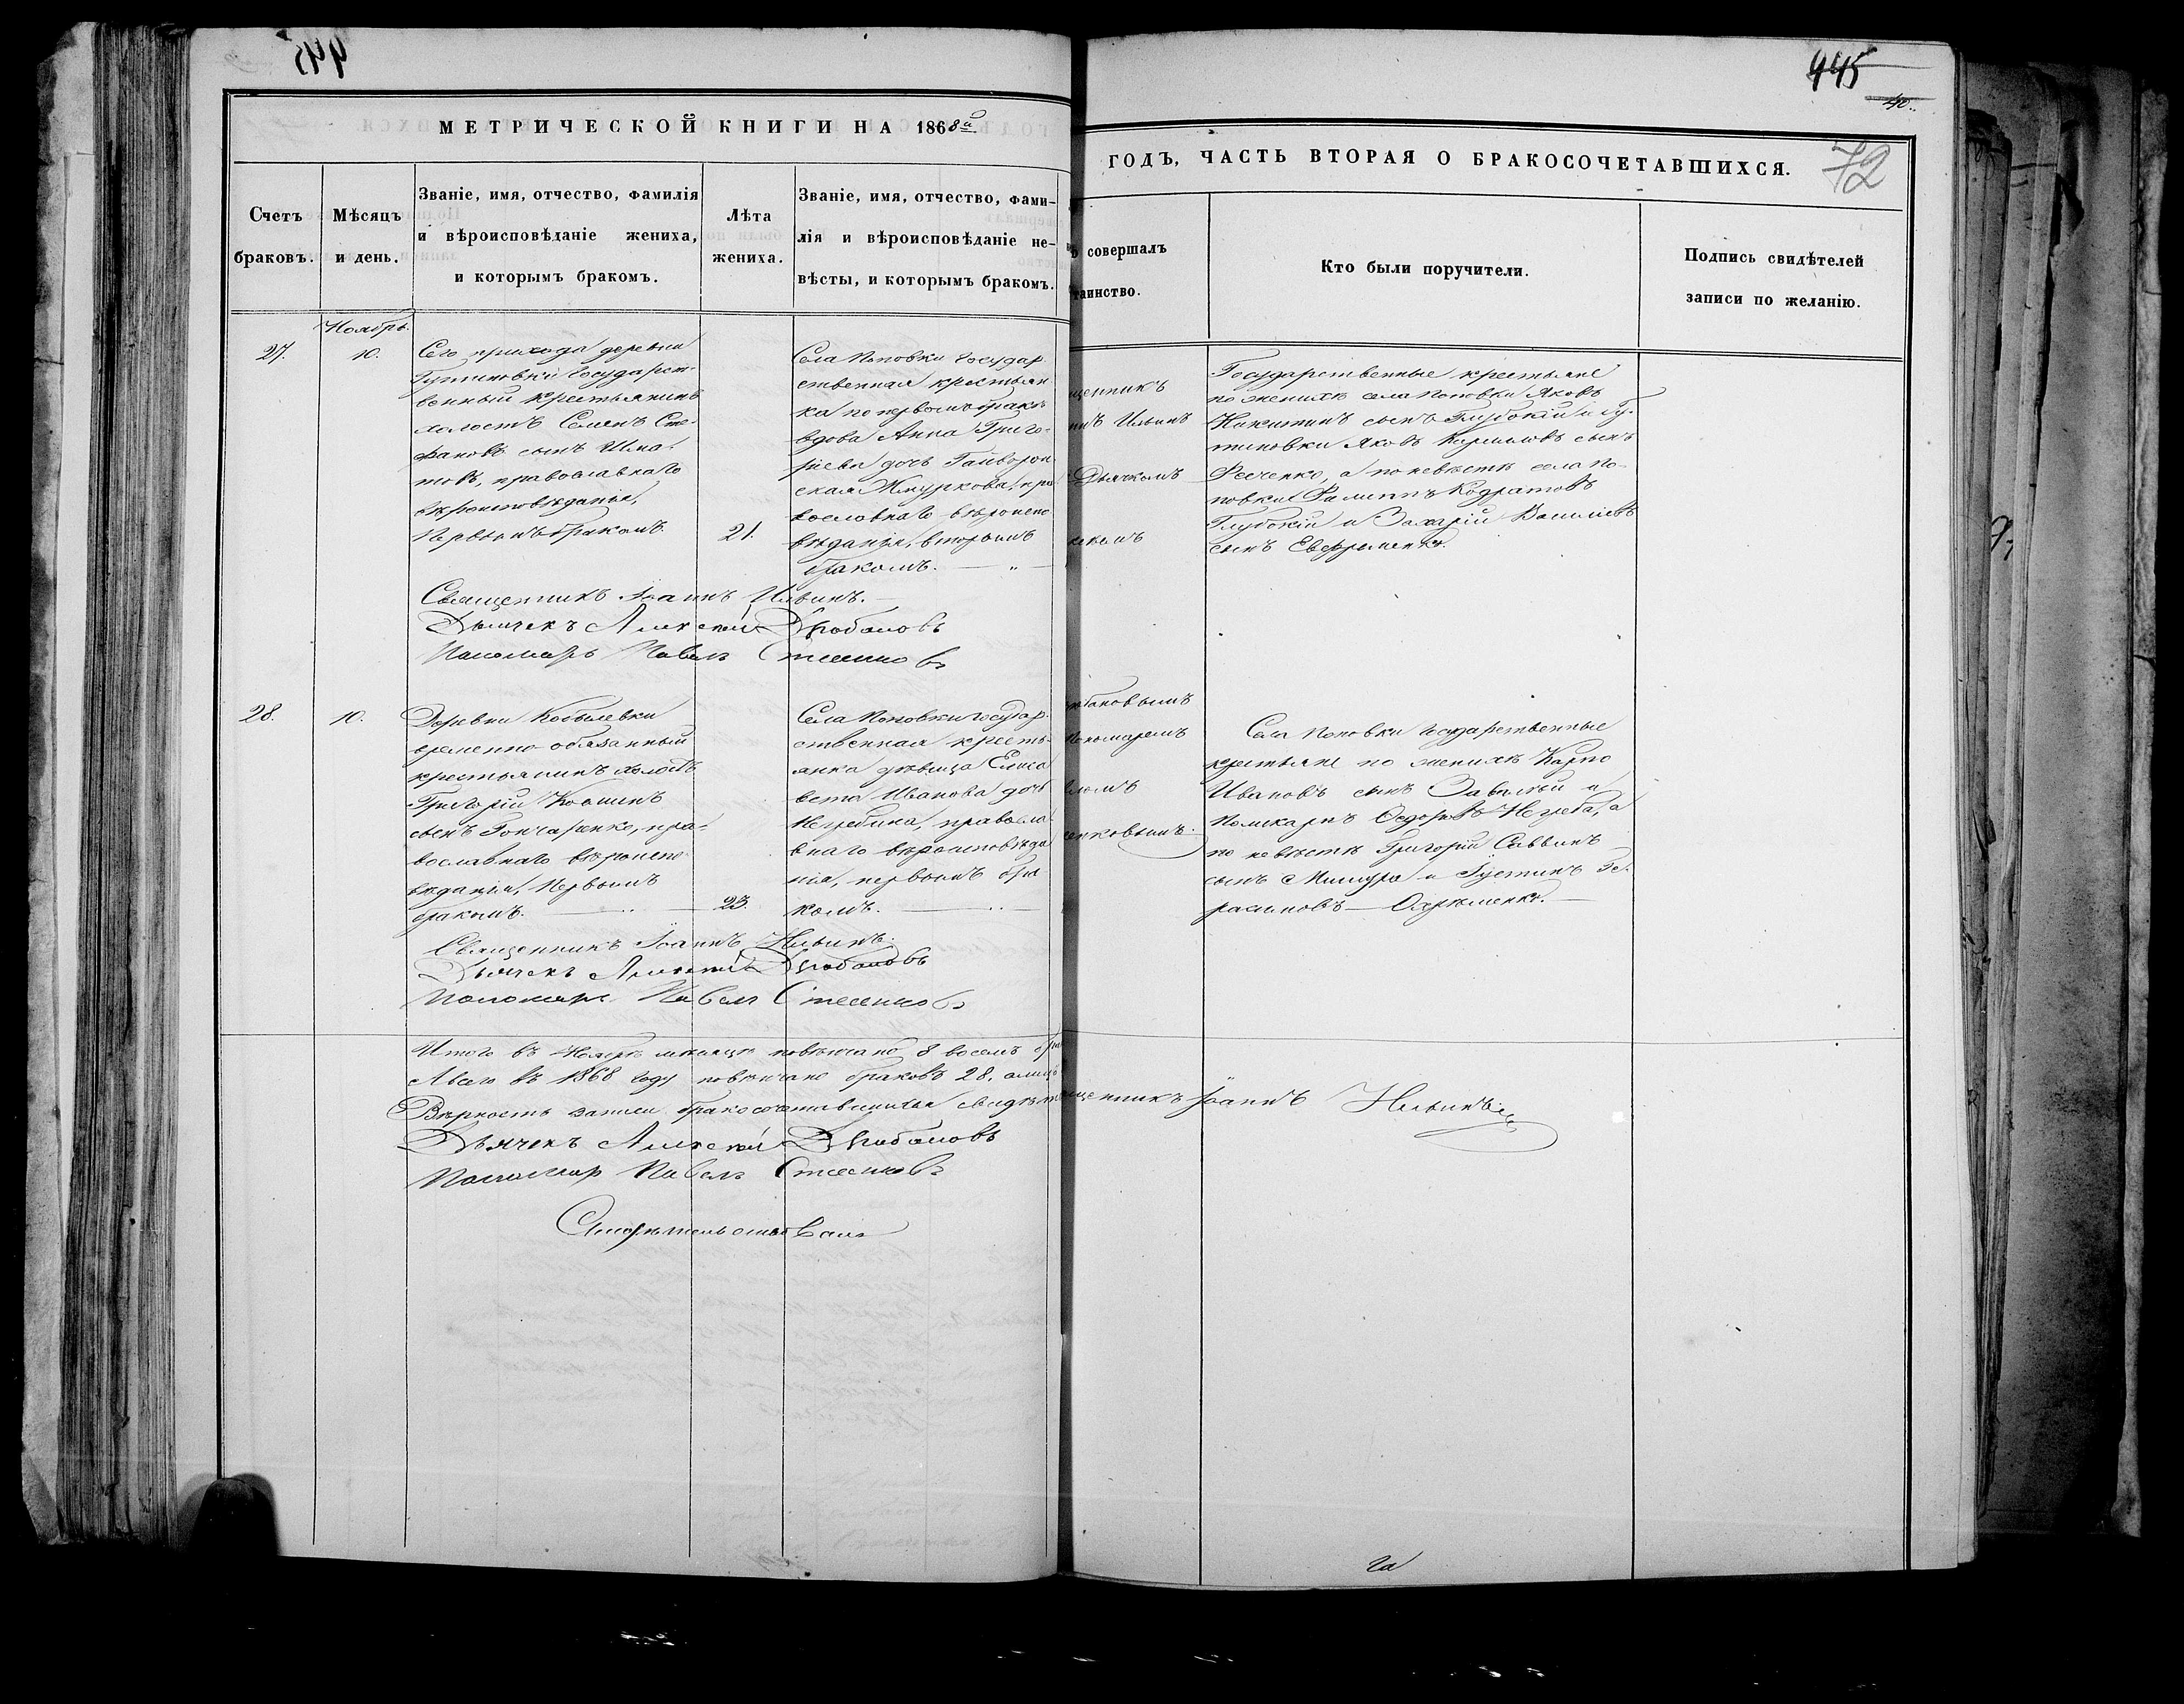 445
40
МЕТРИЧЕСКОЙ КНИГИ НА 1868й
ГОДЪ, ЧАСТЬ ВТОРАЯ О БРАКОСОЧЕТАВШИХСЯ.
72
Счетъ
браковъ.
Мѣсяцъ
и день.
Званіе, имя, отчество, фамилія
и вѣроисповѣданіе жениха,
и которымъ бракомъ.
Лѣта
жениха.
Званіе, имя, отчество, фами-
лія и вѣроисповѣданіе не-
вѣсты, и которымъ бракомъ.
ъ совершалъ
таинство.
Кто были поручители.
Подпись свидѣтелей
записи по желанію.
Ноябрь.
27.
10.
Сего прихода деревни
Государст-
венный крестьянинъ
холостъ Семенъ Сте-
фановъ сынъ Игна-
товъ, православнаго
вѣроисповѣданія,
Первымъ бракомъ.
21.
Села Поповки Государ-
ственная крестьян
ка по первомъ бракѣ
вдова Анна Григо-
ріева дочь Гайворон
ская Жмуркова, пра
вославнаго вѣроиспо
вѣданія, вторымъ
бракомъ.
щенникъ
нъ Ильинъ
Дьячкомъ
Государственные крестьяне
по женихѣ села Поповки Яковъ
Никитинъ сынъ Глубокій и Гу-
тиновки Яковъ сынъ
а по невѣстѣ села По-
повки Филиппъ Кодратовъ
Глубокій и Захарій Василіевъ
сынъ
Священникъ Іоаннъ Ильинъ.
Дьячекъ Алексей
Пономарь Павелъ Стеенковъ
28.
10.
Деревни Кобылевки
временно-обязанный
крестьянинъ холостъ
Григорій Косминъ
сынъ Гончаренко, пра-
вославнаго вѣроиспо-
вѣданія, Первымъ
бракомъ.
23.
Села Поповки Государ-
ственная кресть-
янка дѣвица Елиса
вета Иванова дочь
Негребина, правосла
внаго вѣроисповѣда
нія, первымъ бра
комъ.
бановымъ
Пономаремъ
енковымъ.
Села Поповки Государственные
крестьяне по женихѣ Карпо
Ивановъ сынъ Завилый и
Поликарпъ Федоровъ Негреба, а
по невѣстѣ Григорій Саввинъ
сынъ и Іустинъ Ге-
расимовъ Охрѣменко.
Священникъ Іоаннъ Ильинъ.
Дьячекъ Алексей
Пономарь Павелъ Стеенковъ
Итого въ Ноябрѣ мѣсяцѣ повѣнчано 8 восемъ бра
А всего въ 1868 году повѣнчано браковъ 28,
Вѣрность записи бракосочетавшихся свидѣте щенникъ Іоаннъ Ильинъ
Дьячекъ Алексей
Пономар Павелъ Стеенковъ